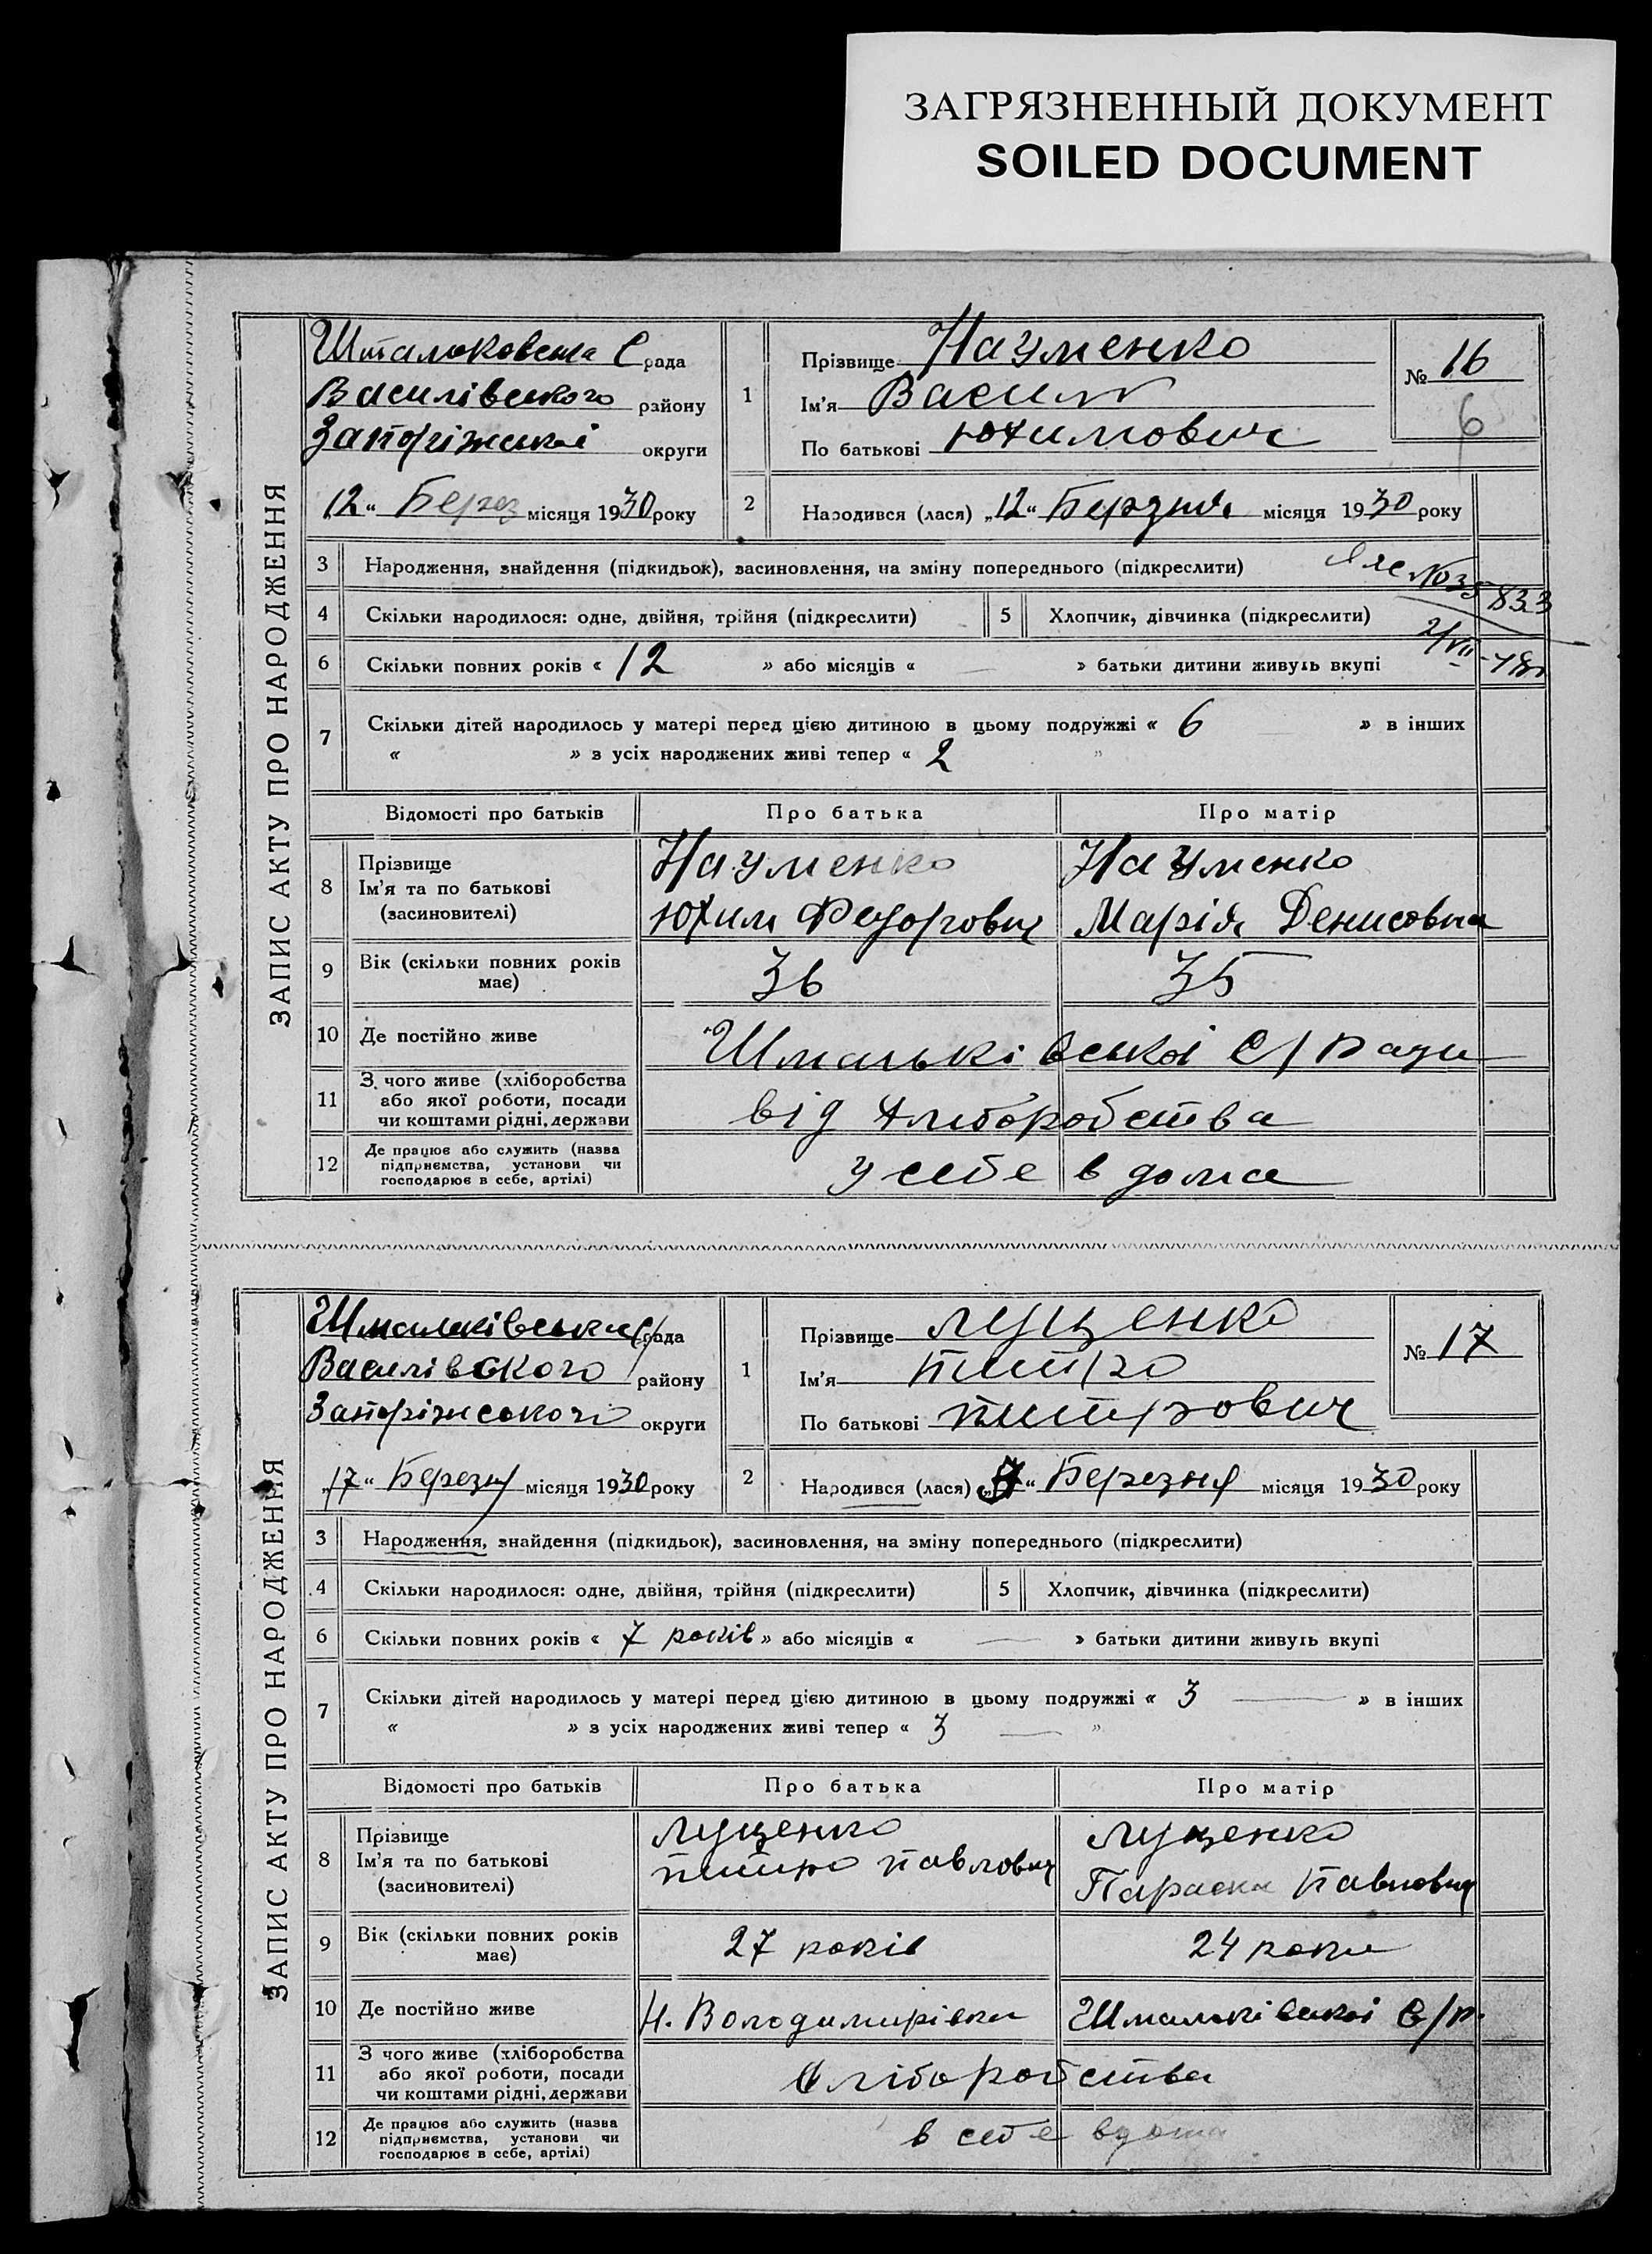 ЗАГРЯЗНЕННЫЙ ДОКУМЕНТ
SOILED DOCUMENT
ЗАПИС АКТУ ПРО НАРОДЖЕННЯ
рада
Василівського району
Запоріжської округи
12 “ Берез місяця 1930 року
1
Прізвище Науменко
Ім’я Василь
По батькові Юхимович
№ 16
6
2
Народився (лася) „12“ Березня місяця 1930 року
3 Народження, знайдення (підкидьок), засиновлення, на зміну попереднього (підкреслити)
4 Скільки народилося: одне, двійня, трійня (підкреслити) 5 Хлопчик, дівчинка (підкреслити)
6 Скільки повних років « 12 » або місяців « — » батьки дитини живуть вкупі
7 Скільки дітей народилось у матері перед цією дитиною в цьому подружжі « 6 » в інших
« » з усіх народжених живі тепер « 2 »
Відомості про батьків Про батька Про матір
8 Прізвище
Ім’я та по батькові
(засиновителі)
Науменко
Юхим Федорович
Науменко
Марія Денисовна
9 Вік (скільки повних років має) 36 35
10 Де постійно живе Шмальківської с/ради
11 З чого живе (хліборобства
або якої роботи, посади
чи коштами рідні, держави
від хліборобства
12 Де працює або служить (назва
підприємства, установи чи
господарює в себе, артілі)
у себе в дома
ЗАПИС АКТУ ПРО НАРОДЖЕННЯ
Шмальківська с/рада
Василівского району
округи
„17“ Березня місяця 1930 року
1
Прізвище Луценко
Ім’я Питро
По батькові Питрович
№ 17
2
Народився (лася) “ Березня місяця 1930 року
3 Народження, знайдення (підкидьок), засиновлення, на зміну попереднього (підкреслити)
4 Скільки народилося: одне, двійня, трійня (підкреслити) 5 Хлопчик, дівчинка (підкреслити)
6 Скільки повних років « 7 років » або місяців « — » батьки дитини живуть вкупі
7 Скільки дітей народилось у матері перед цією дитиною в цьому подружжі « 3 — » в інших
« » з усіх народжених живі тепер « 3 — »
Відомості про батьків Про батька Про матір
8 Прізвище
Ім’я та по батькові
(засиновителі)
Луценко
Питро Павлович
Луценко
Параска
9 Вік (скільки повних років має) 27 років 24 роки
10 Де постійно живе Н. Володимирівка Шмальківської с/р.
11 З чого живе (хліборобства
або якої роботи, посади
чи коштами рідні, держави
хліборобства
12 Де працює або служить (назва
підприємства, установи чи
господарює в себе, артілі)
в себе вдома